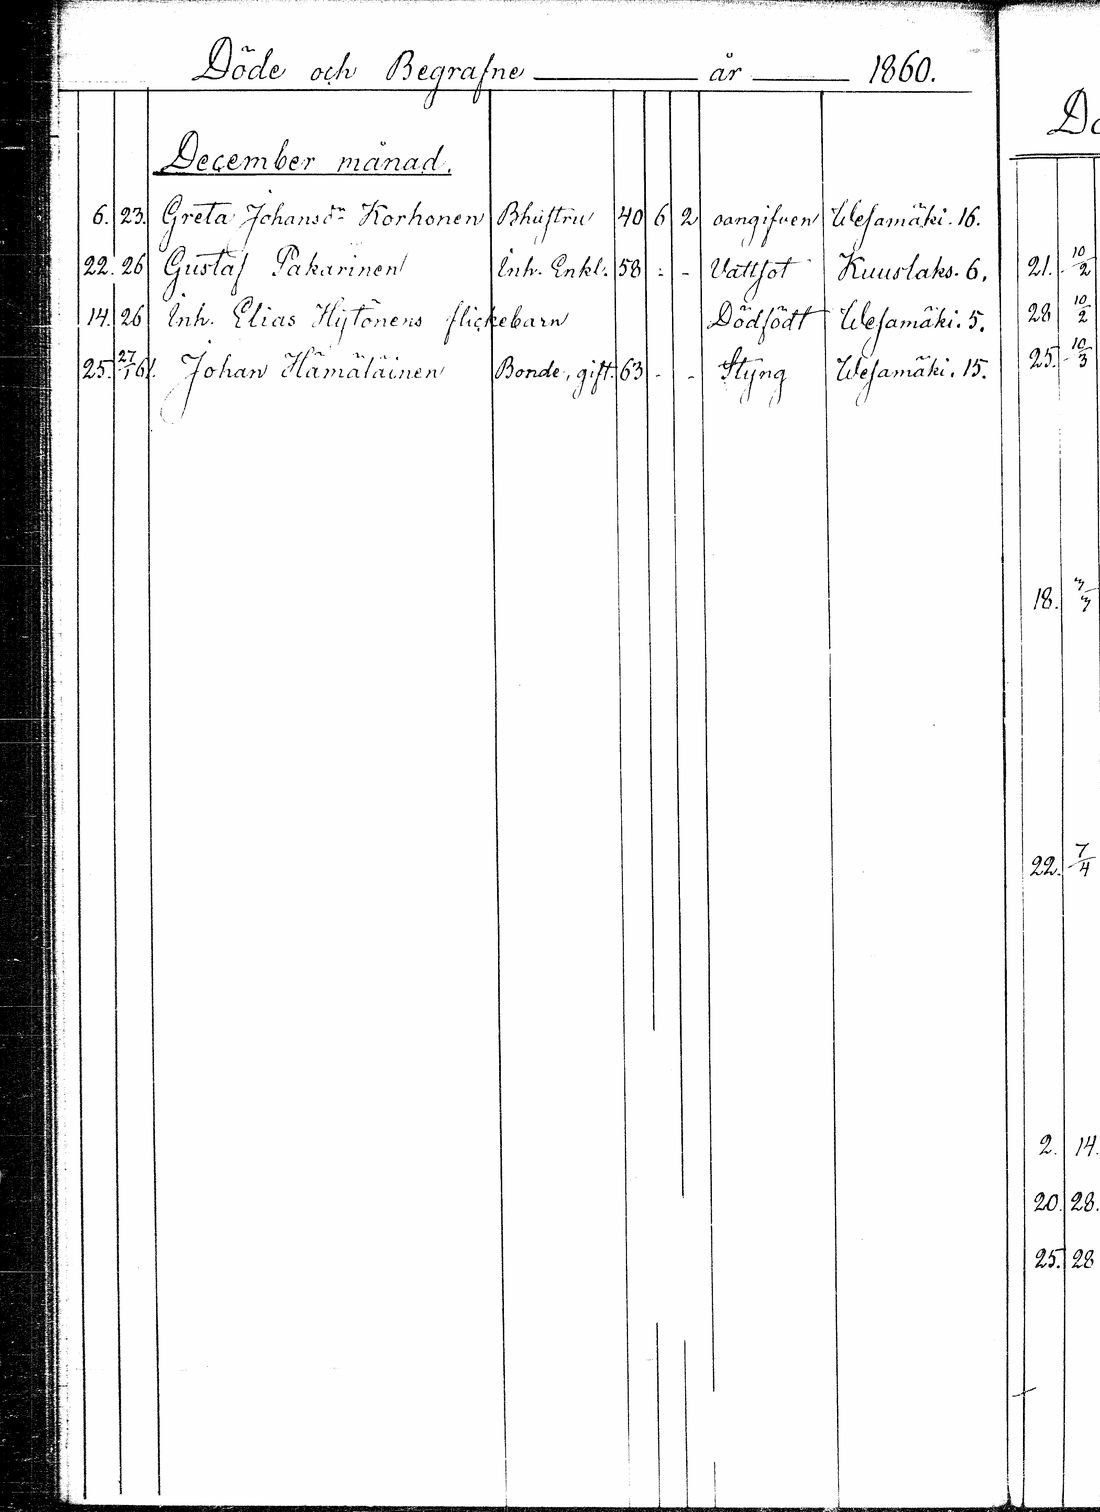 Döde och Begrafne år 1860.
December månad.
6. 23. Greta Johansdr Korhonen Bhustru 40 6 2 oangifven Wesamäki. 16.
22. 26 Gustaf Pakarinen Inh. Enkl. 58 - - Vattsot Kuuslaks. 6.
14. 26 Inh. Elias Hytönens flickebarn Dödfödt Wesamäki. 5.
25. 27/1 61. Johan Hämäläinen Bonde, gift. 63 - - Styng Wesamäki. 15.
Dö
21. 10/2
28 10/2
25. 10/3
18.
22. 7/4
2. 14.
20. 28.
25. 28